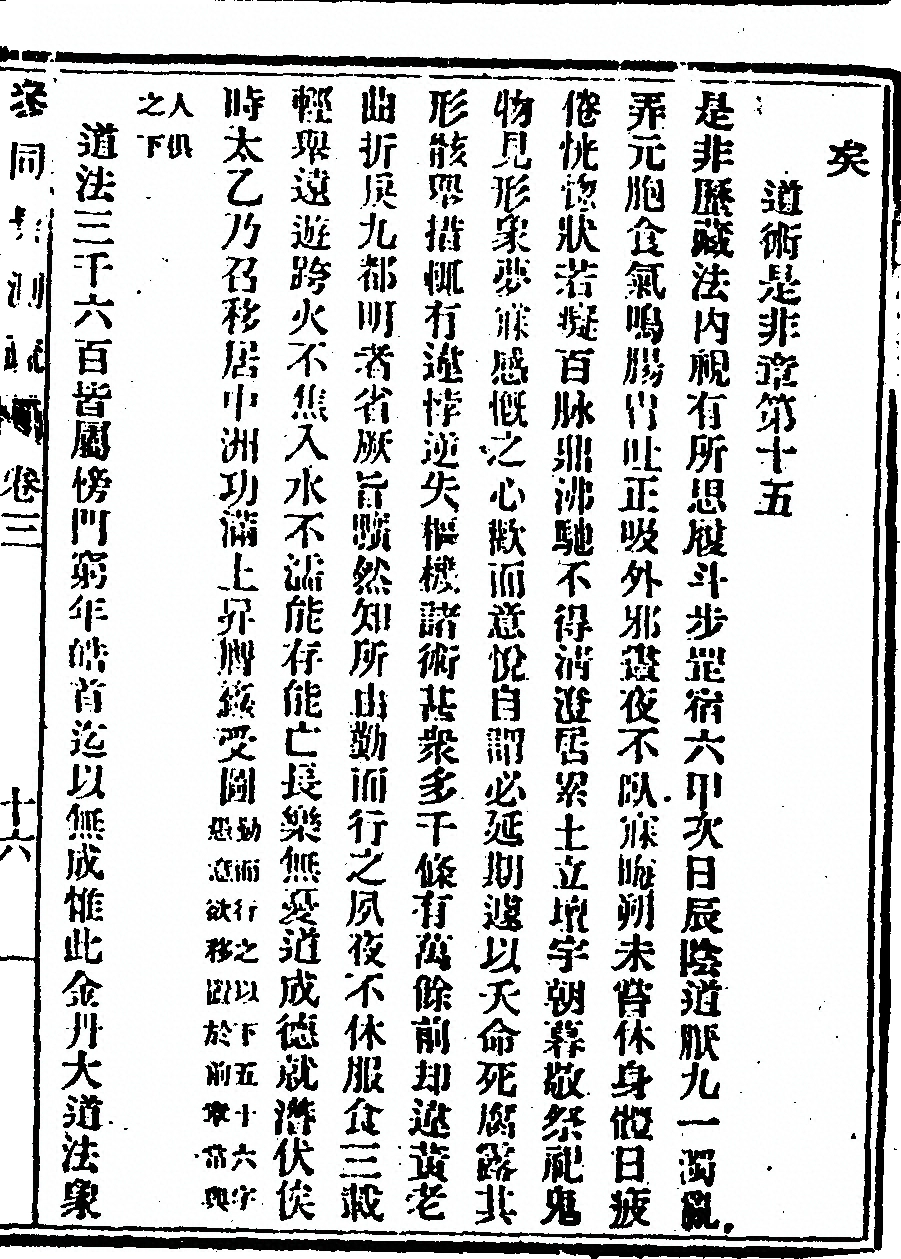 矣
道術是非章第十五
是非歷藏法內視有所思履斗步罡宿六甲次日辰陰道厭九一濁亂
弄元胞食氣鳴腸胃吐正吸外邪晝夜不臥寐晦朔未嘗休身體日疲
倦恍惚狀若癡百脉鼎沸馳不得淸澄居累土立壇宇朝暮敬祭祀鬼
物見形象夢寐感慨之心歡而意悅自謂必延期遽以夭命死腐露其
形骸舉措輒有違悖逆失樞機諸術甚衆多千條有萬餘前却違黃老
曲折戾九都明者省厥旨曠然知所由勤而行之夙夜不休服食三載
輕舉遠遊跨火不焦入水不濡能存能亡長樂無憂道成德就潛伏俟
時太乙乃召移居中洲功滿上昇膺籙受圖勤而行之以下五十六字愚意欲移置於前章當與
人俱之下
道法三千六百皆屬傍門窮年皓首迄以無成惟此金丹大道法象
參同 卷三 十六